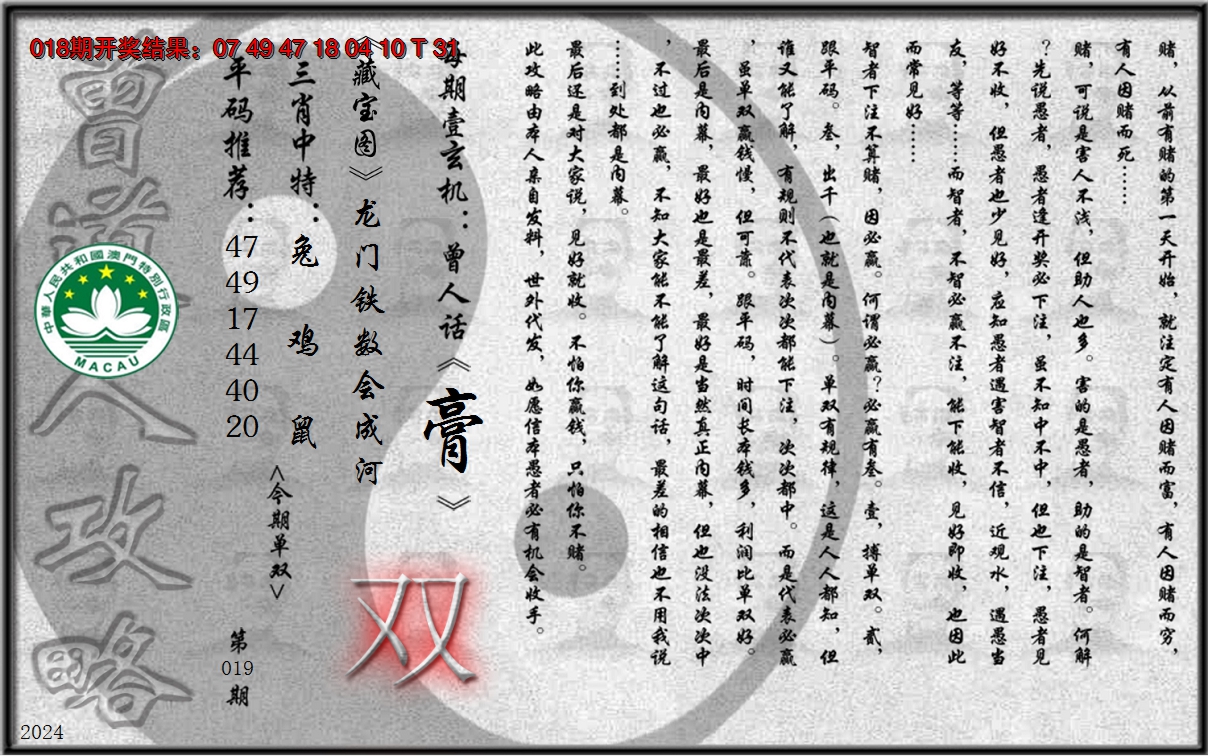 018期开奖结果：07 49 47 18 04 10 T 31
赌，从前有赌的第一天开始，就注定有人因赌而富，有人因赌而穷，
有人因赌而死……
赌，可说是害人不浅，但助人也多。害的是愚者，助的是智者。何解
？先说愚者，愚者逢开奖必下注，虽不知中不中，但也下注，愚者见
好不收，但愚者也少见好，应知愚者遇害智者不信，近观水，遇愚当
友，等等……而智者，不智必赢不注，能下能收，见好即收，也因此
而常见好……
智者下注不算赌，因必赢。何谓必赢？必赢有叁。壹，搏单双。贰，
跟平码。叁，出千（也就是内幕）。单双有规律，这是人人都知，但
谁又能了解，有规则不代表次次都能下注，次次都中。而是代表必赢
，虽单双赢钱慢，但可靠。跟平码，时间长本钱多，利润比单双好。
最后是内幕，最好也是最差，最好是当然真正内幕，但也没法次次中
，不过也必赢，不知大家能不能了解这句话，最差的相信也不用我说
……到处都是内幕。
最后还是对大家说，见好就收。不怕你赢钱，只怕你不赌。
此攻略由本人亲自发料，世外代发，如愿信本愚者必有机会收手。
每期壹玄机：曾人话《膏》
《藏宝图》龙门铁数会成河
双
三肖中特：兔 鸡 鼠
<今期单双>
平码推荐：47 49 17 44 40 20
第019期
曾道人攻略
中華人民共和國澳門特別行政區
MACAU
2024